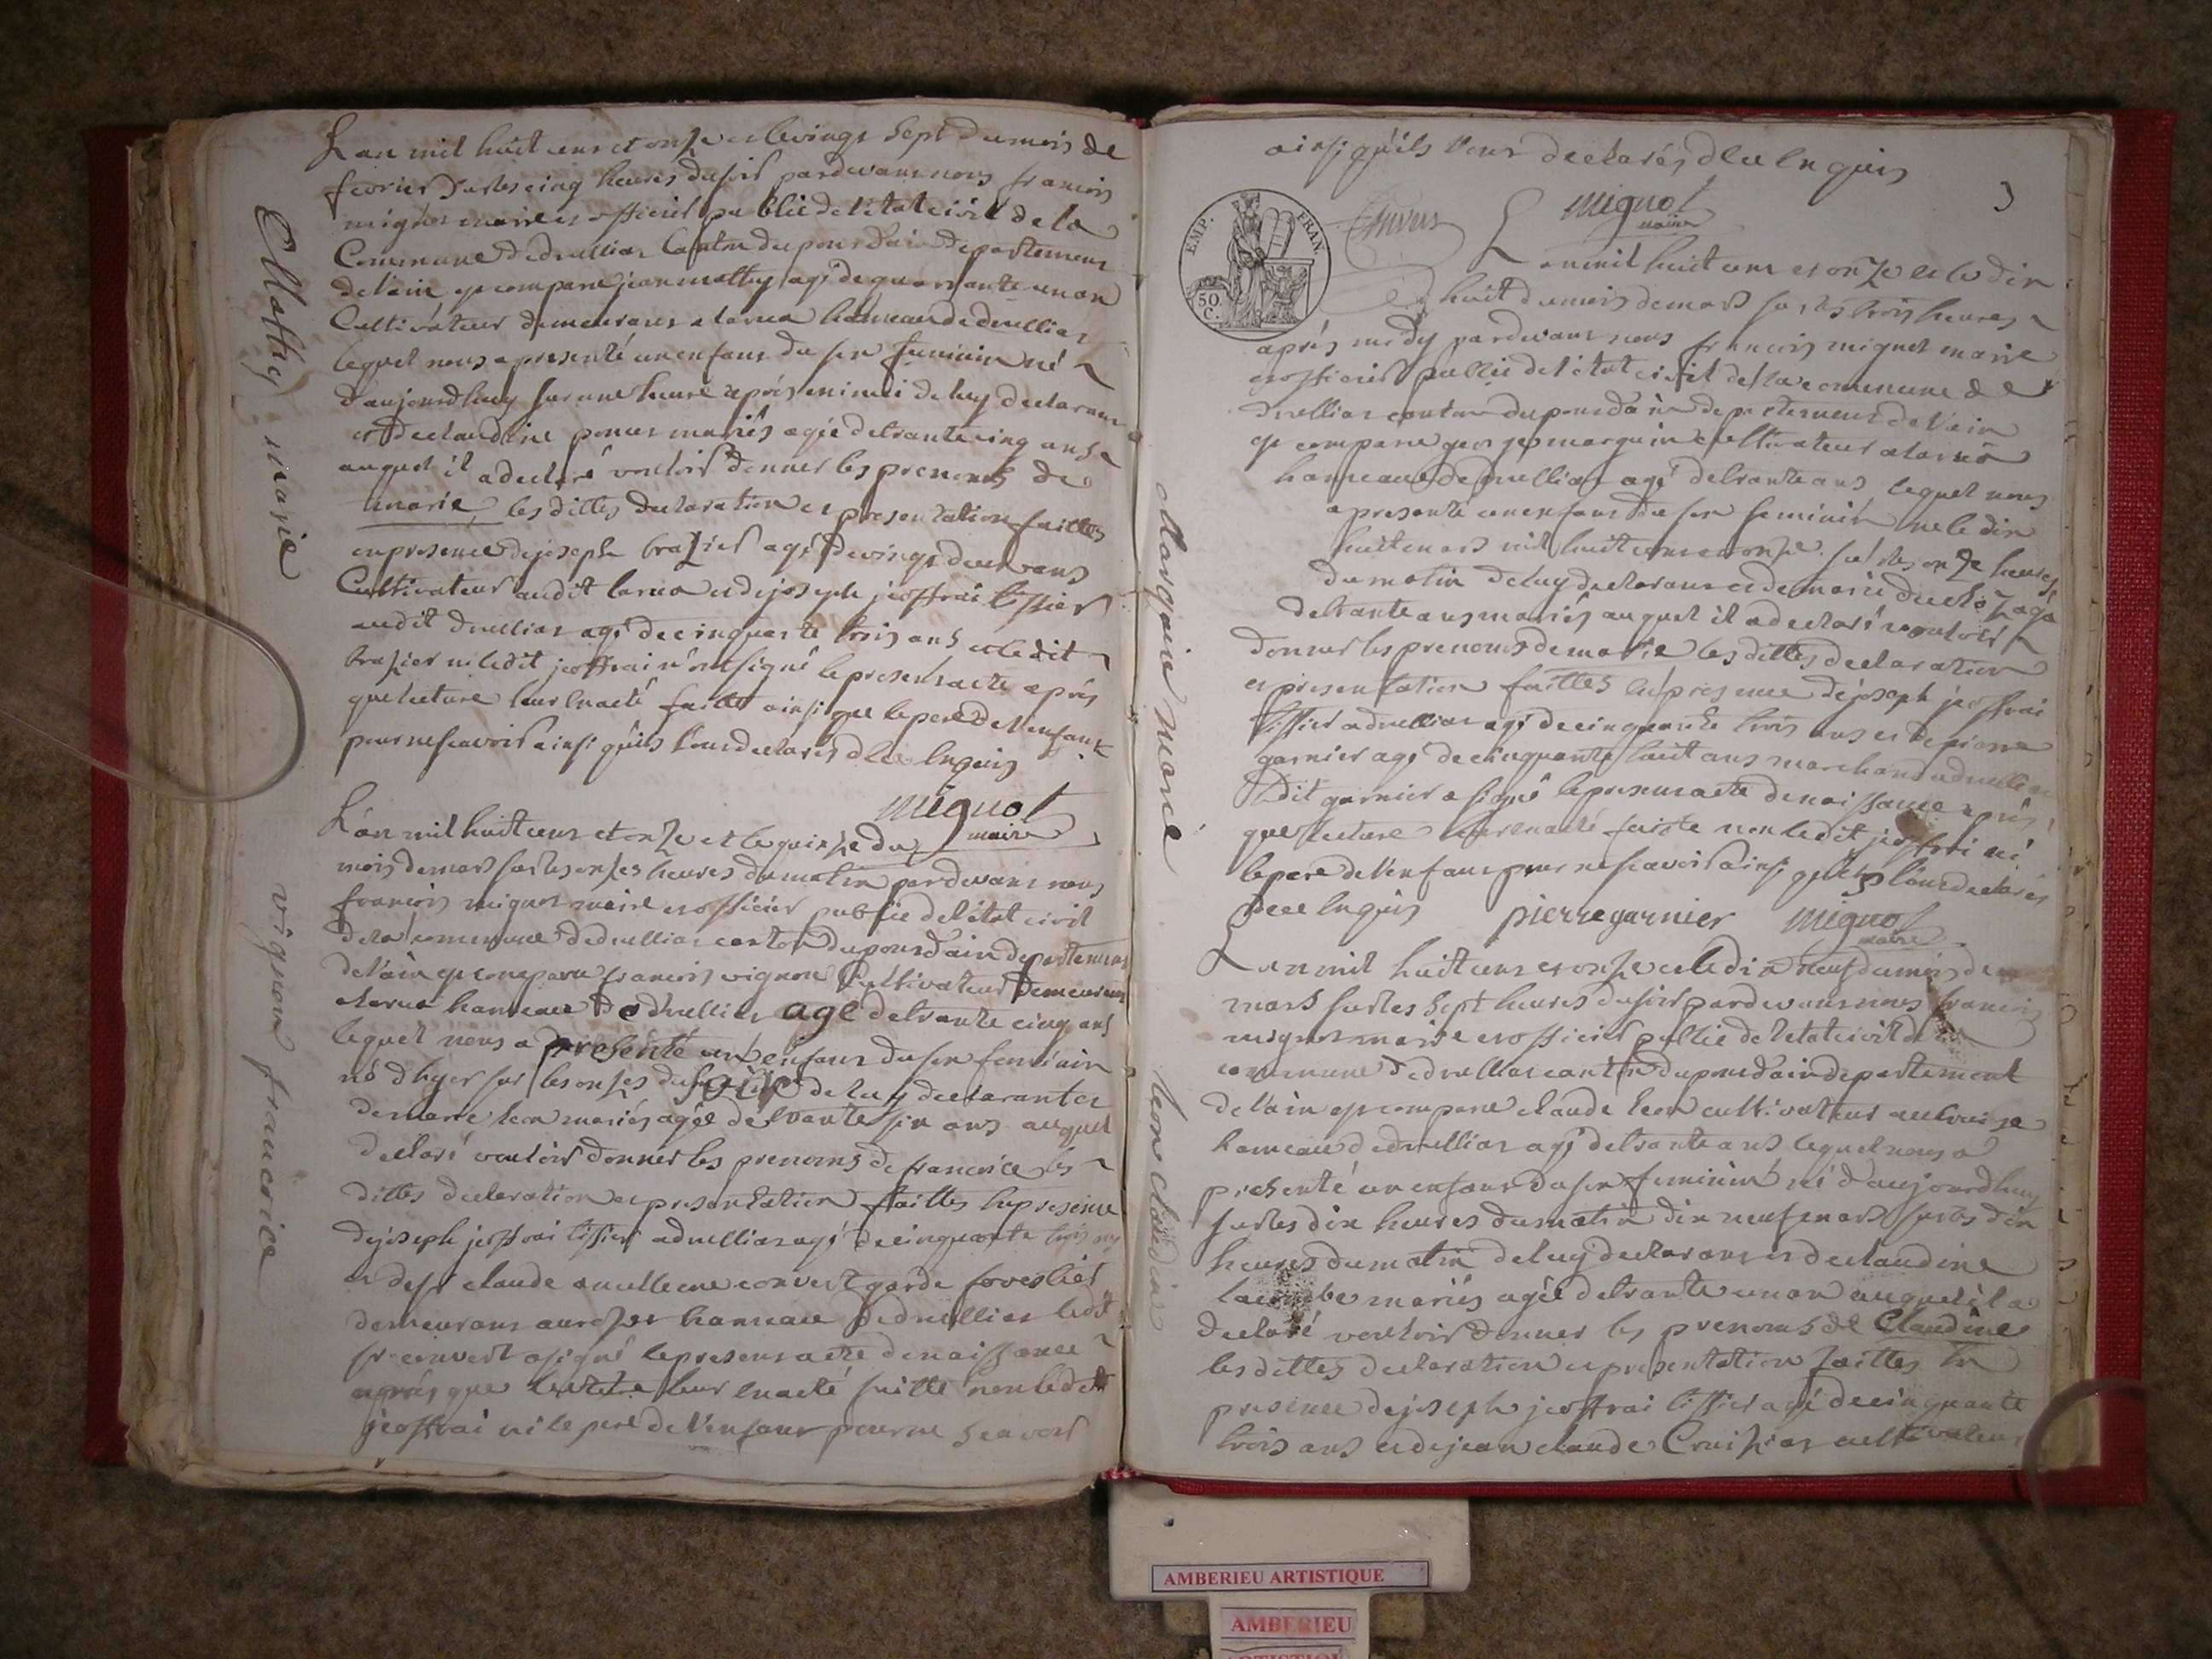 Mathy marie
vignon francoice
L'an mil huit cens et onze et le vingt sept du mois de
fevrier sur les cinq heures du soir pardevant nous francois
mignot maire et officier public de l'état civil de la
Commune de druillias Canton du pont d'ain departement
de l'ain est comparu jean mathy agé de quarrante un an
Cultivateur demeurant a hameau de druillias
lequel nous a presenté un enfant du sex feminin né
d'aujourd'huy sur une heure après minuit de luy declarant
et de claudine mariés agée de trante cinq ans
auquel il a declaré vouloir donner les prenoms de
marie les dittes declaration et presentation faittes
en presence de joseph brazier agé de vingt deux ans
Cultivateur audit et de joseph jeoffrai tissier
audit druillias agé de cinquante trois ans et ledit
brazier ni ledit jeoffrai n'ont signé le present acte après
que lecture leur en a eté faitte ainsi que le pere de l'enfant
pour ne scavoir ainsi qu'ils l'ont declarés de ce enquis
mignot
maire
L'an mil huit cens et onze et le quinze du
mois de mars sur les onzes heures du matin pardevant nous
francois mignot maire et officier public de l'état civil
de la commune de druillias canton du pont d'ain departement
de l'ain est comparu francois vignon Cultivateur demeurant
hameau de druillias agé de trante cinq ans
lequel nous a presenté un enfant du sex feminin
né d'hyer sur les onzes du soir de luy declarant et
de marie leon mariés agée de trante six ans auquel
declaré vouloir donner les prenoms de francoice les
dittes declaration et presentation faittes en presence
de joseph jeoffrai tissier a druillias agé de cinquante trois ans
et de sr claude convert garde forestier
demeurant hameau de druillias ledit
sr convert a signé le present acte de naissance
après que lecture leur en a eté faitte non ledit
jeoffrai ni le pere de l'enfant pour ne scavoir
ainsi qu'ils l'ont declarés de ce enquis
3
mignot
maire
EMP. FRAN.
50. C.
marquin marie
leon claudine
L'an mil huit cens et onze et le dix
huit du mois de mars sur les trois heures
après midy pardevant nous francois mignot maire
et officier public de l'état civil de la commune de
druillias canton du pont d'ain departement de l'ain
est comparu georges marquin cultivateur
hameau de druillias agé de trante ans lequel nous
a presenté un enfant du sex feminin né le dix
huit mars mil huit cens et onze sur les onze heures
du matin de luy declarant et de marie agée
de trante ans mariés auquel il a declaré vouloir
donner les prenoms de marie les dittes declaration
et presentation faittes en presence de joseph jeoffrai
tissier a druillias agé de cinquante trois ans et de pierre
garnier agé de cinquante huit ans marchand a druillias
ledit garnier a signé le present acte de naissance après
que lecture leur en a eté faitte non ledit jeoffrai ni
le pere de l'enfant pour ne scavoir ainsi qu'ils l'ont declarés
de ce enquis pierre garnier mignot
maire
L'an mil huit cens et onze et le dix neuf du mois de
mars sur les sept heures du soir pardevant nous francois
mignot maire et officier public de l'état civil de
commune de druillias canton du pont d'ain departement
de l'ain est comparu claude leon cultivateur
hameau de druillias agé de trante ans lequel nous a
presenté un enfant du sex feminin né d'aujourd'huy
sur les dix heures du matin dix neuf mars sur les dix
heures du matin de luy declarant et de claudine
lacombe mariés agée de trante un an auquel il a
declaré vouloir donner les prenoms de Claudine
les dittes declaration et presentation faittes en
presence de joseph jeoffrai tissier agé de cinquante
trois ans et de jean claude cultivateur
AMBERIEU ARTISTIQUE
AMBERIEU
ARTISTIQUE